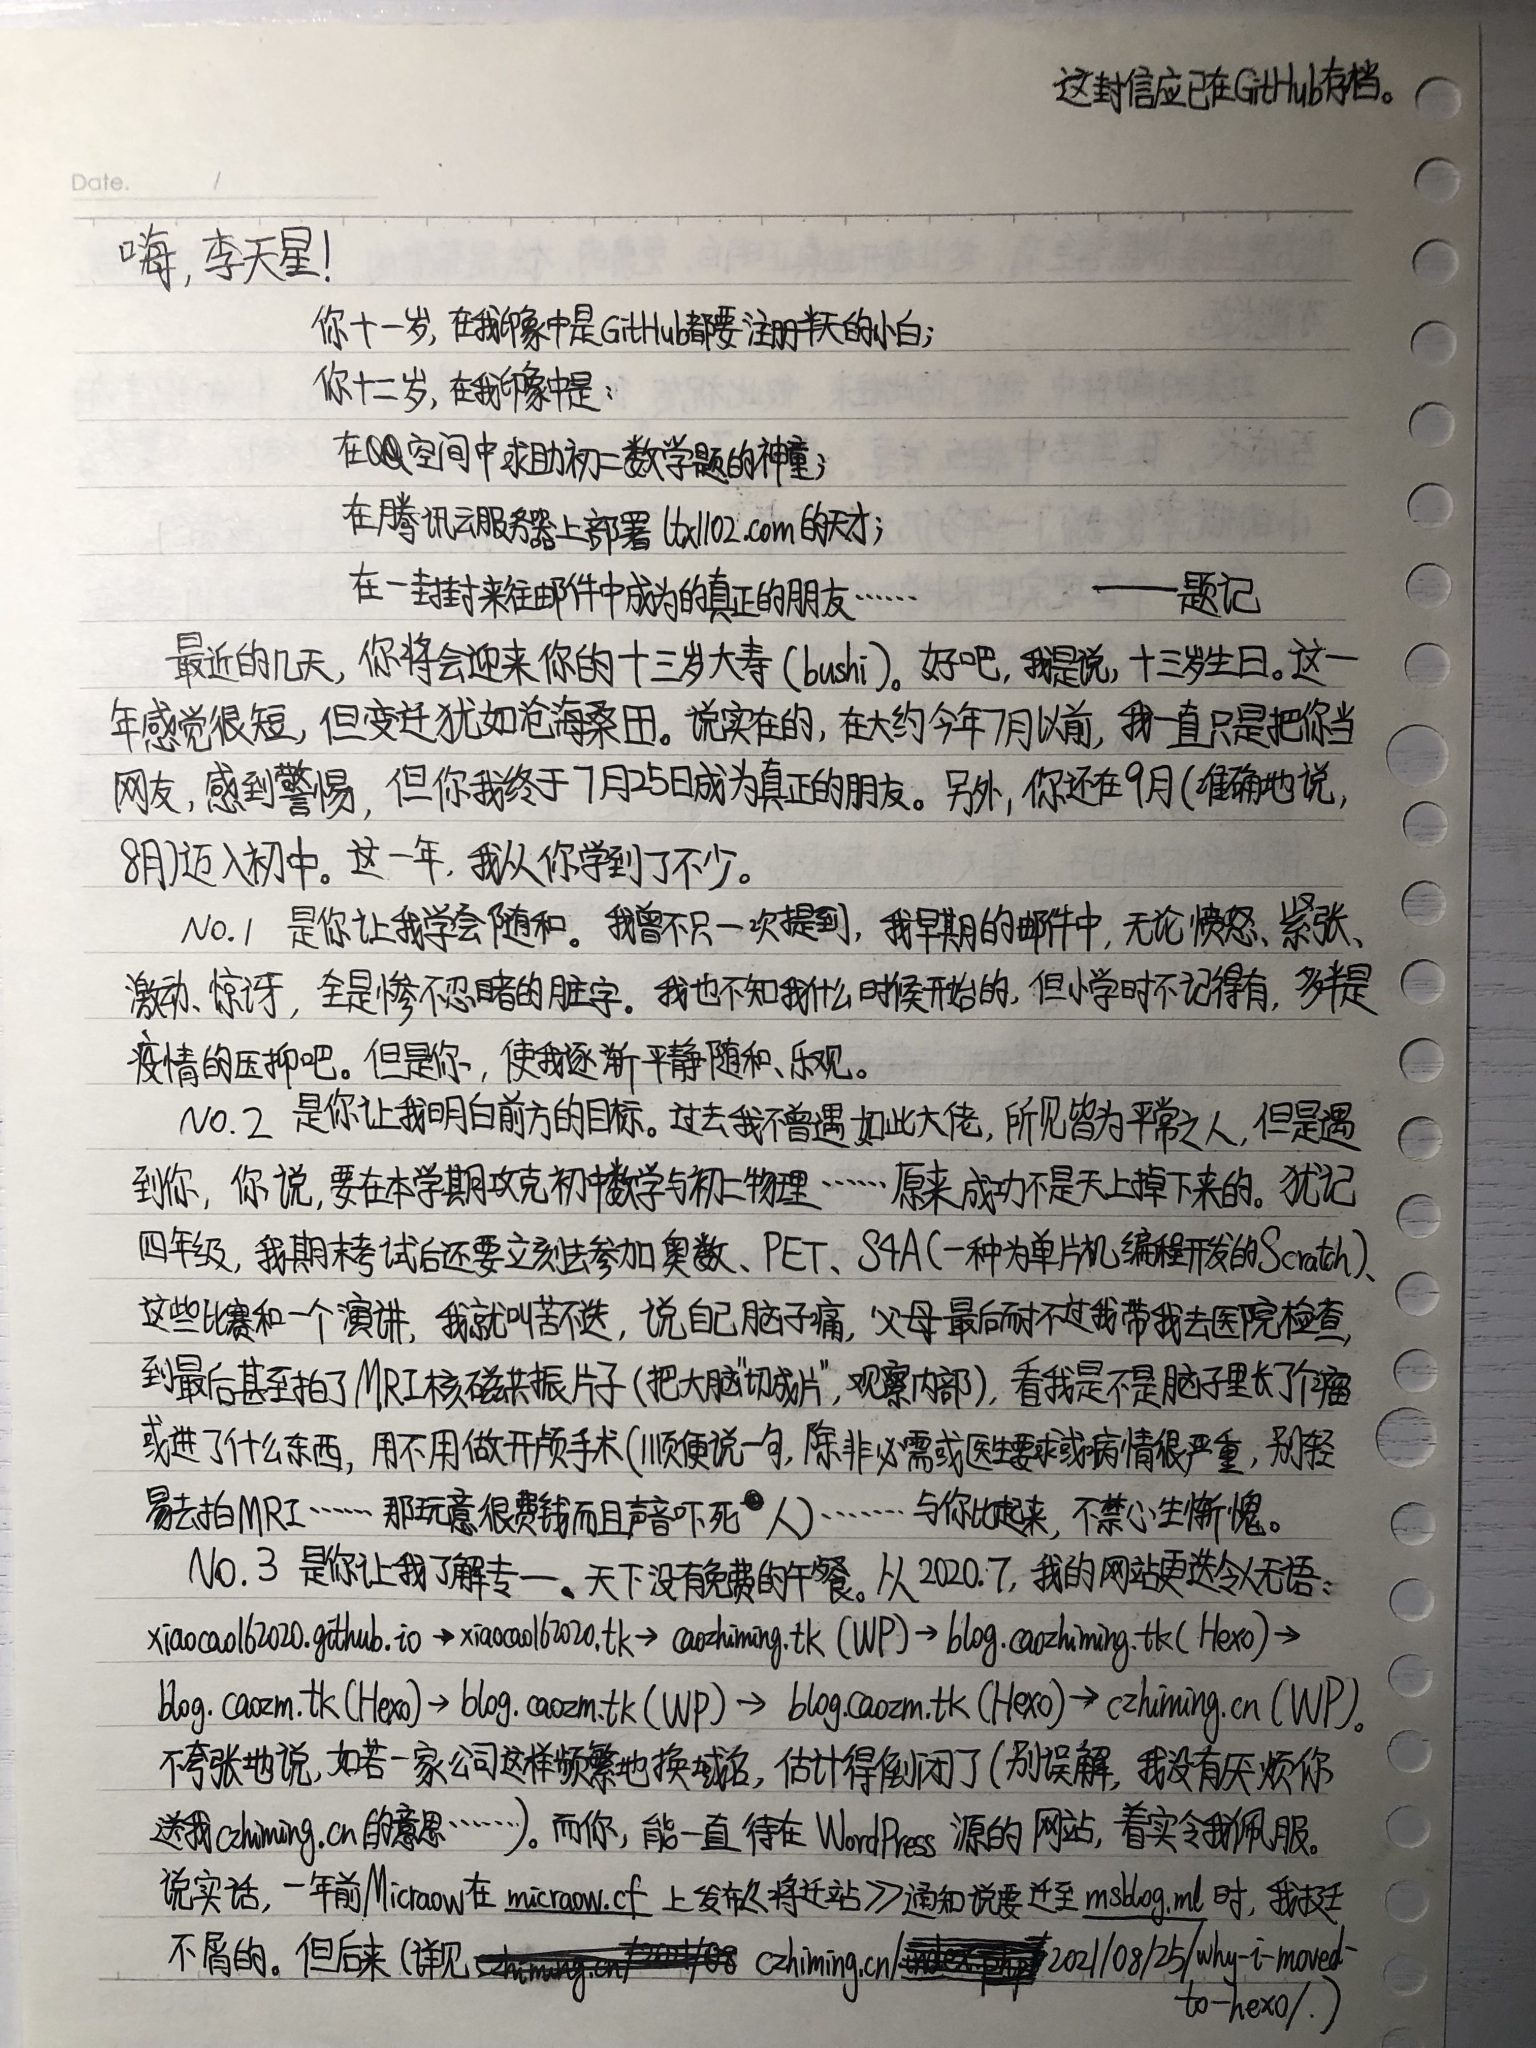 这封信应已在GitHub存档。
Date. /
嗨,李天星!
你十一岁,在我印象中是GitHub都要注册半天的小白;
你十二岁,在我印象中是:
在QQ空间中求助初二数学题的神童;
在腾讯云服务器上部署ltx1102.com的天才;
在一封封来往邮件中成为的真正的朋友…… ——题记
最近的几天,你将会迎来你的十三岁大寿(bushi)。好吧,我是说,十三岁生日。这一
年感觉很短,但变迁犹如沧海桑田。说实在的,在大约今年7月以前,我一直只是把你当
网友,感到警惕,但你我终于7月25日成为真正的朋友。另外,你还在9月(准确地说,
8月)迈入初中。这一年,我从你学到了不少。
No.1 是你让我学会随和。我曾不只一次提到,我早期的邮件中,无论愤怒、紧张、
激动、惊讶,全是惨不忍睹的脏字。我也不知我什么时候开始的,但小学时不记得有,多半是
疫情的压抑吧。但是你,使我逐渐平静随和、乐观。
No.2 是你让我明白前方的目标。过去我不曾遇如此大佬,所见皆为平常之人,但是遇
到你,你说,要在本学期攻克初中数学与初二物理……原来成功不是天上掉下来的。犹记
四年级,我期末考试后还要立刻去参加奥数、PET、S4A(一种为单片机编程开发的Scratch)、
这些比赛和一个演讲,我就叫苦不迭,说自己脑子痛,父母最后耐不过我带我去医院检查,
到最后甚至拍了MRI核磁共振片子(把大脑"切成片",观察内部),看我是不是脑子里长了个瘤
或进了什么东西,用不用做开颅手术(顺便说一句,除非必需或医生要求或病情很严重,别轻
易去拍MRI……那玩意很费钱而且声音吓死人)……与你比起来,不禁心生惭愧。
No.3 是你让我了解专一。天下没有免费的午餐。从2020.7,我的网站更迭令人无语:
xiaocao162020.github.io→xiaocao162020.tk→caozhiming.tk(WP)→blog.caozhiming.tk(Hexo)→
blog.caozm.tk(Hexo)→blog.caozm.tk(WP)→blog.caozm.tk(Hexo)→czhiming.cn(WP)。
不夸张地说,如若一家公司这样频繁地换域名,估计得倒闭了(别误解,我没有厌烦你
送我czhiming.cn的意思……)。而你,能一直待在WordPress源的网站,着实令我佩服。
说实话,一年前Micraow在micraow.cf上发布《将迁站》通知说要迁至msblog.ml时,我挺
不屑的。但后来(详见 czhiming.cn/2021/08/25/why-i-moved-
to-hexo/.)